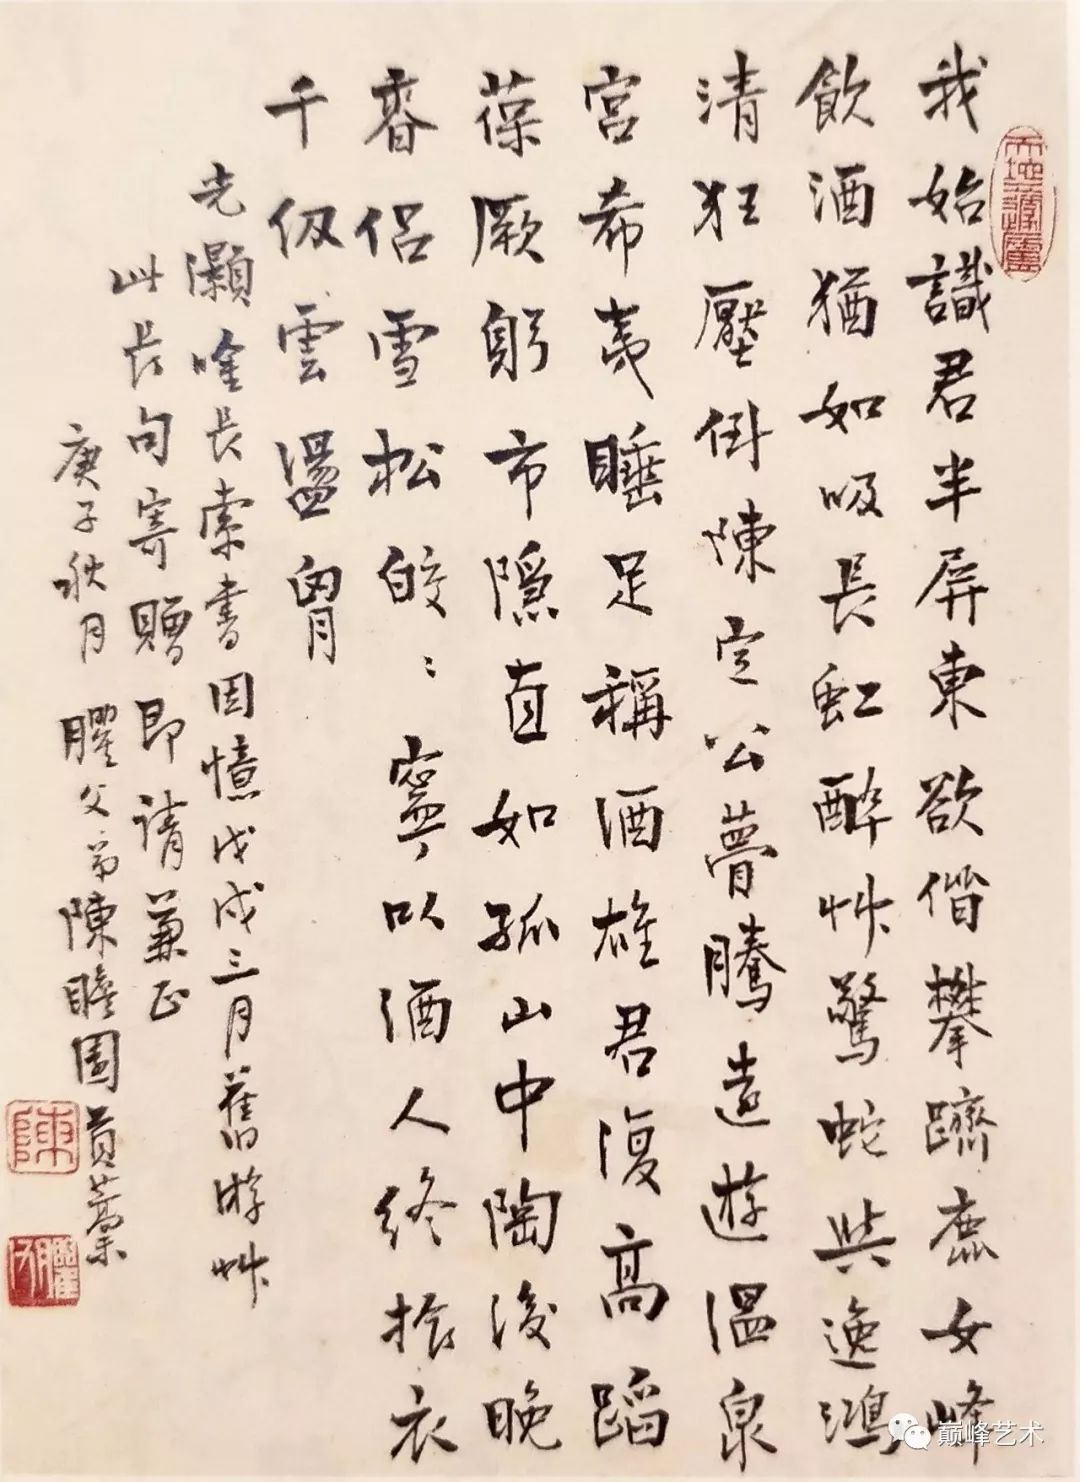 我始識君半屏東欲偕攀躋鹿女峰
飲酒猶如吸長虹醉艸驚蛇與逸鴻
清狂壓倒陳定公瞢騰遠遊溫泉
宮希夷睡足稱酒雄君復高蹈
葆厥躬市隱直如孤山中陶後晚
香侶雪松皎〻寧以酒人終振衣
千仞雲盪胷
光灝唫長索書因憶戊戌三月舊游艸
此長句寄贈即請蕙正
庚子秋月 臞父弟陳瞻園貢藁
陳
巅峰艺术